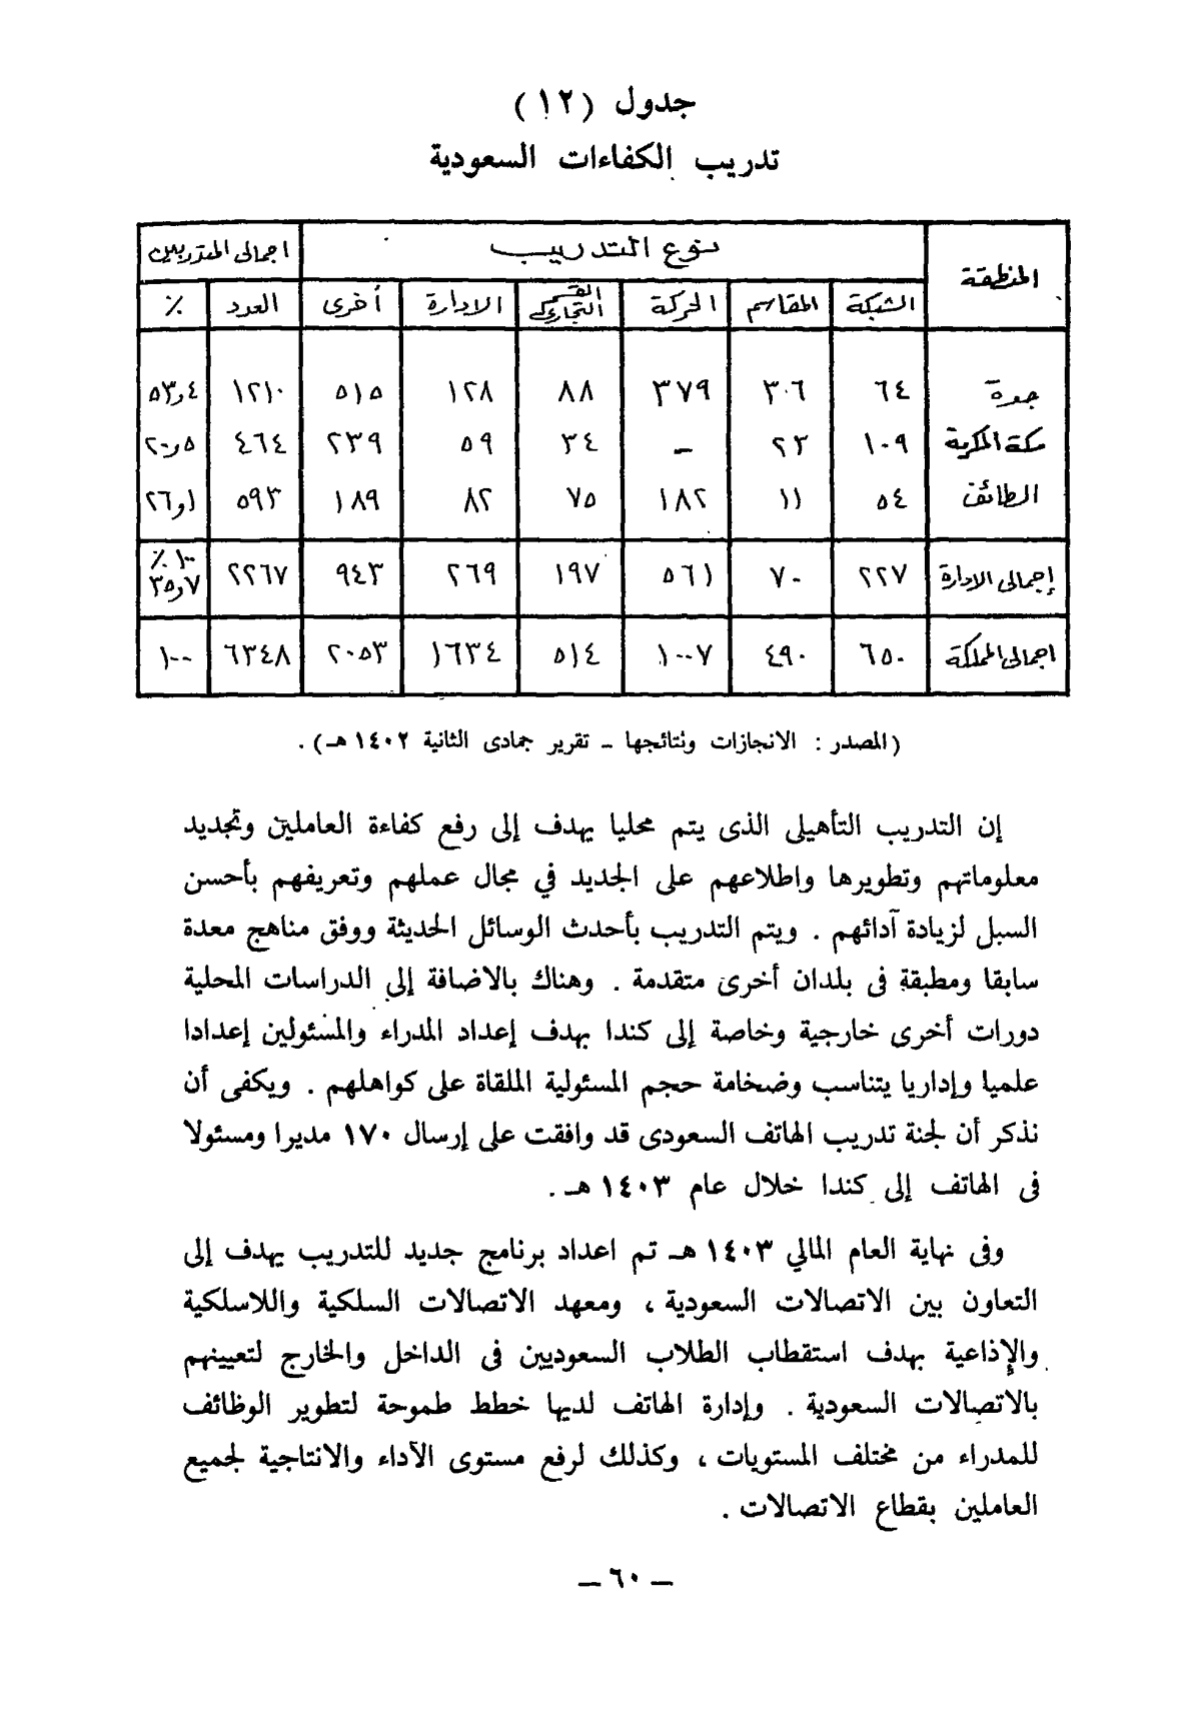 جدول (١٢)
تدريب الكفاءات السعودية
المنطقة نوع التدريب اجمالى المتدربين
الشبكة المقاسم الحركة القسم التجارى الادارة أخرى العدد ٪
جدة ٦٤ ٣٠٦ ٣٧٩ ٨٨ ١٢٨ ٥١٥ ١٢١٠ ٥٣٫٤
مكة المكرمة ١٠٩ ٢٣ – ٣٤ ٥٩ ٢٣٩ ٤٦٤ ٢٠٫٥
الطائف ٥٤ ١١ ١٨٢ ٧٥ ٨٢ ١٨٩ ٥٩٣ ٢٦٫١
إجمالى الادارة ٢٢٧ ٧٠ ٥٦١ ١٩٧ ٢٦٩ ٩٤٣ ٢٢٦٧ ١٠٠٪ ٣٥٫٧
اجمالى المملكة ٦٥٠ ٤٩٠ ١٠٠٧ ٥١٤ ١٦٣٤ ٢٠٥٣ ٦٣٤٨ ١٠٠
(المصدر : الانجازات ونتائجها – تقرير جمادى الثانية ١٤٠٢ هـ) .
إن التدريب التأهيلى الذى يتم محليا يهدف إلى رفع كفاءة العاملين وتجديد
معلوماتهم وتطويرها واطلاعهم على الجديد في مجال عملهم وتعريفهم بأحسن
السبل لزيادة آدائهم . ويتم التدريب بأحدث الوسائل الحديثة ووفق مناهج معدة
سابقا ومطبقة فى بلدان أخرى متقدمة . وهناك بالاضافة إلى الدراسات المحلية
دورات أخرى خارجية وخاصة إلى كندا بهدف إعداد المدراء والمسئولين إعدادا
علميا وإداريا يتناسب وضخامة حجم المسئولية الملقاة على كواهلهم . ويكفى أن
نذكر أن لجنة تدريب الهاتف السعودى قد وافقت على إرسال ١٧٠ مديرا ومسئولا
فى الهاتف إلى كندا خلال عام ١٤٠٣ هـ .
وفى نهاية العام المالي ١٤٠٣ هـ تم اعداد برنامج جديد للتدريب يهدف إلى
التعاون بين الاتصالات السعودية ، ومعهد الاتصالات السلكية واللاسلكية
والإذاعية بهدف استقطاب الطلاب السعوديين فى الداخل والخارج لتعيينهم
بالاتصالات السعودية . وإدارة الهاتف لديها خطط طموحة لتطوير الوظائف
للمدراء من مختلف المستويات ، وكذلك لرفع مستوى الآداء والانتاجية لجميع
العاملين بقطاع الاتصالات .
– ٦٠ –